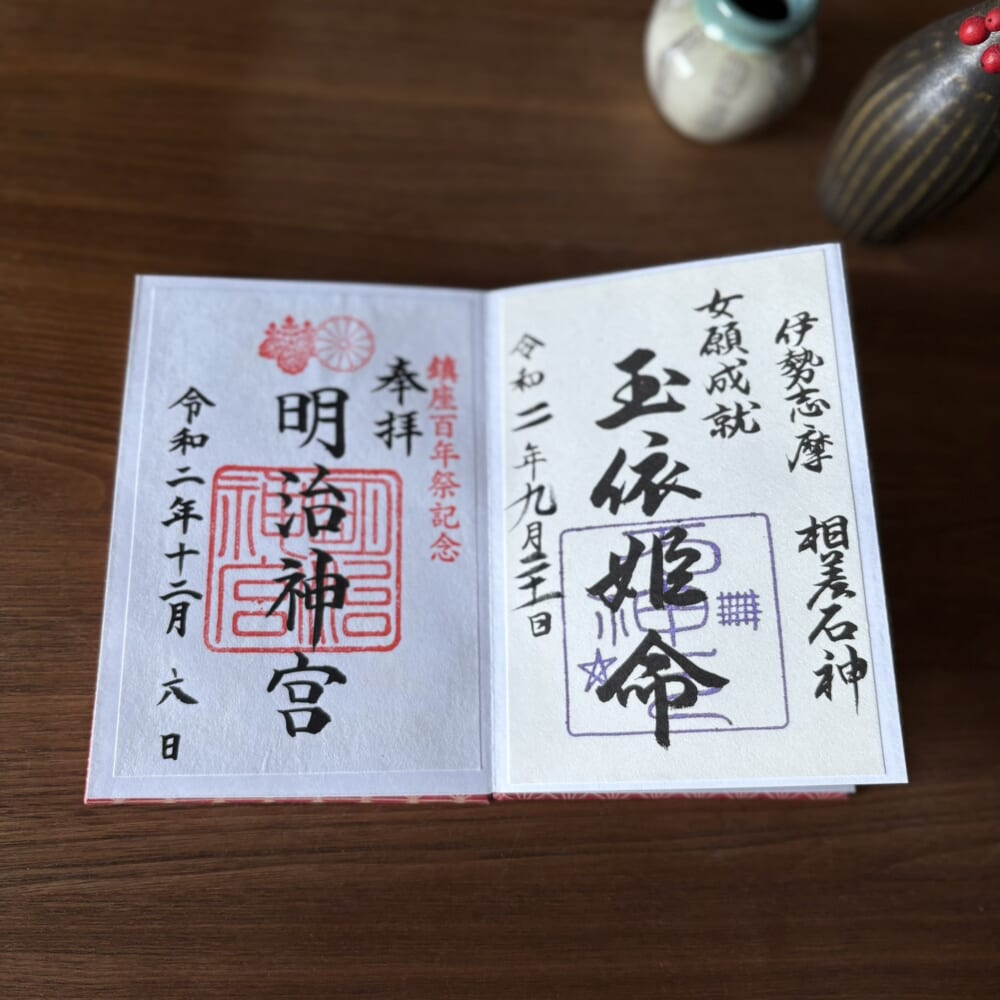 伊勢志摩 相差石神
女願成就
玉依姫命
令和二年九月二十一日
鎮座百年祭記念
奉拝
明治神宮
明治神宮
令和二年十二月六日